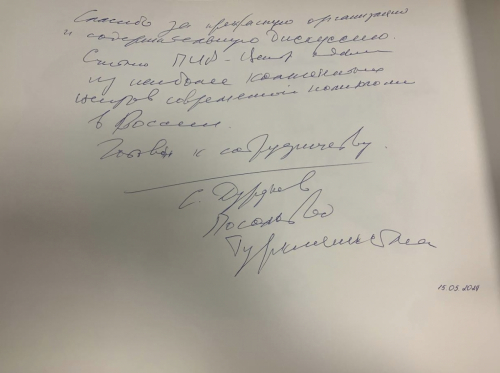 Спасибо за прекрасную организацию
и содержательную дискуссию.
Считаю ПИР-Центр одним
из наиболее
центров современной
в России.
Готовы к сотрудничеству.
С. Дурдыев
Посольство
Туркменистана
15.05.2024